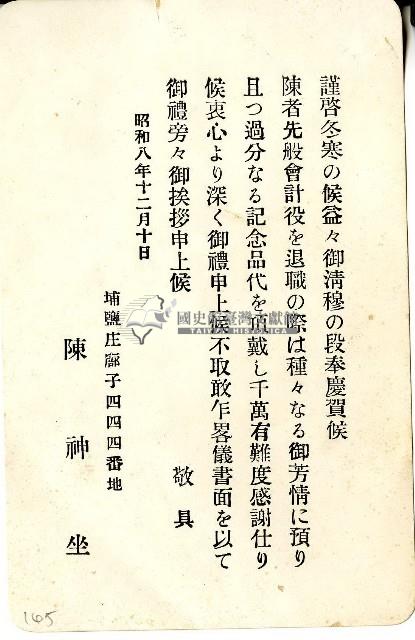 謹啓冬寒の候益々御清穆の段奉慶賀候
陳者先般會計役を退職の際は種々なる御芳情に預り
且つ過分なる記念品代を頂戴し千萬有難度感謝仕り
候衷心より深く御禮申上候不取敢乍畧儀書面を以て
御禮旁々御挨拶申上候
敬具
昭和八年十二月十日
埔鹽庄廍子四四四番地
陳神坐
國史館臺灣文獻館
TAIWAN HISTORICA
165